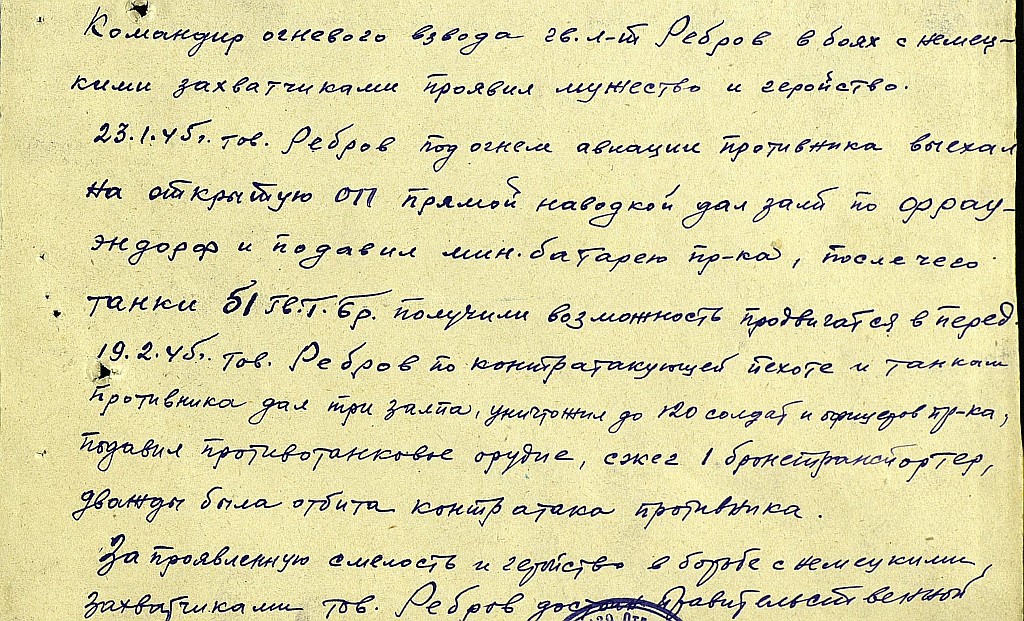 Командир огневого взвода гв. л-т Ребров в боях с немец-
кими захватчиками проявил мужество и геройство.
23.1.45г. тов. Ребров под огнем авиации противника выехал
на открытую ОП прямой наводкой дал залп по Фрау-
эндорф и подавил мин. батарею пр-ка, после чего
танки 51 Гв.Т.Бр. получили возможность продвигатся в перед.
19.2.45г. тов. Ребров по контратакующей пехоте и танкам
противника дал три залпа, уничтожил до 120 солдат и офицеров пр-ка,
подавил противотанковое орудие, сжег 1 бронетранспортер,
дважды была отбита контратака противника.
За проявленную смелость и геройство в борьбе с немецкими
захватчиками тов. Ребров достоин правительственной